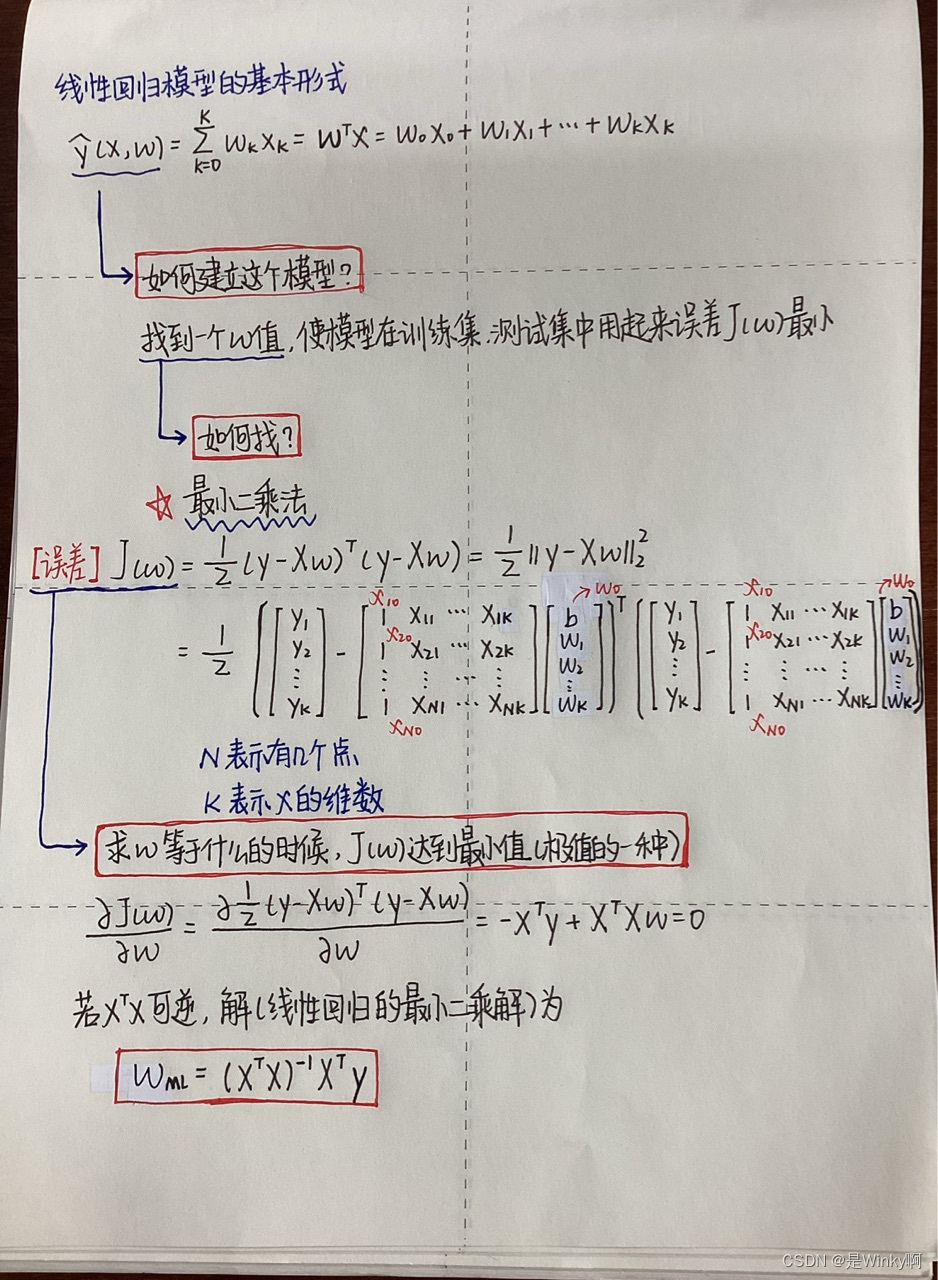 线性回归模型的基本形式
ŷ(X,W) = ∑_{k=0}^{K} W_K X_K = W^T X = W_0 X_0 + W_1 X_1 + ⋯ + W_K X_K
如何建立这个模型?
找到一个W值,使模型在训练集、测试集中用起来误差J(W)最小
如何找?
☆ 最小二乘法
[误差] J(W) = 1/2 (y-XW)^T (y-XW) = 1/2 ||y-XW||_2^2
= 1/2 ( [y_1 y_2 ⋮ y_K] - [1 X_11 ⋯ X_1K; 1 X_21 ⋯ X_2K; ⋮ ⋮ ⋯ ⋮; 1 X_N1 ⋯ X_NK] [b W_1 W_2 ⋮ W_K] )^T ( [y_1 y_2 ⋮ y_K] - [1 X_11 ⋯ X_1K; 1 X_21 ⋯ X_2K; ⋮ ⋮ ⋯ ⋮; 1 X_N1 ⋯ X_NK] [b W_1 W_2 ⋮ W_K] )
X_10 →W_0 X_10 →W_0
X_20 X_20
X_N0 X_N0
N 表示有几个点
K 表示X的维数
求W等于什么的时候,J(W)达到最小值(极值的一种)
∂J(W)/∂W = ∂ 1/2 (y-XW)^T (y-XW) / ∂W = -X^T y + X^T X W = 0
若X^T X可逆,解(线性回归的最小二乘解)为
W_ML = (X^T X)^{-1} X^T y
CSDN @是Winky啊